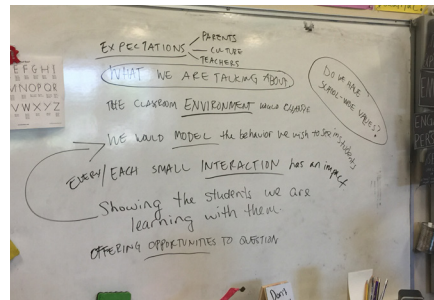 EFGHI
MNOPQR
VWXYZ
EXPECTATIONS
PARENTS
CULTURE
TEACHERS
WHAT WE ARE TALKING ABOUT
DO WE HAVE
SCHOOL-WIDE VALUES?
THE CLASSROOM ENVIRONMENT WOULD CHANGE
WE WOULD MODEL the behavior we wish to see in students
EVERY/EACH SMALL INTERACTION has an impact
Showing the students we are
learning with them.
OFFERING OPPORTUNITIES TO QUESTION
Don't